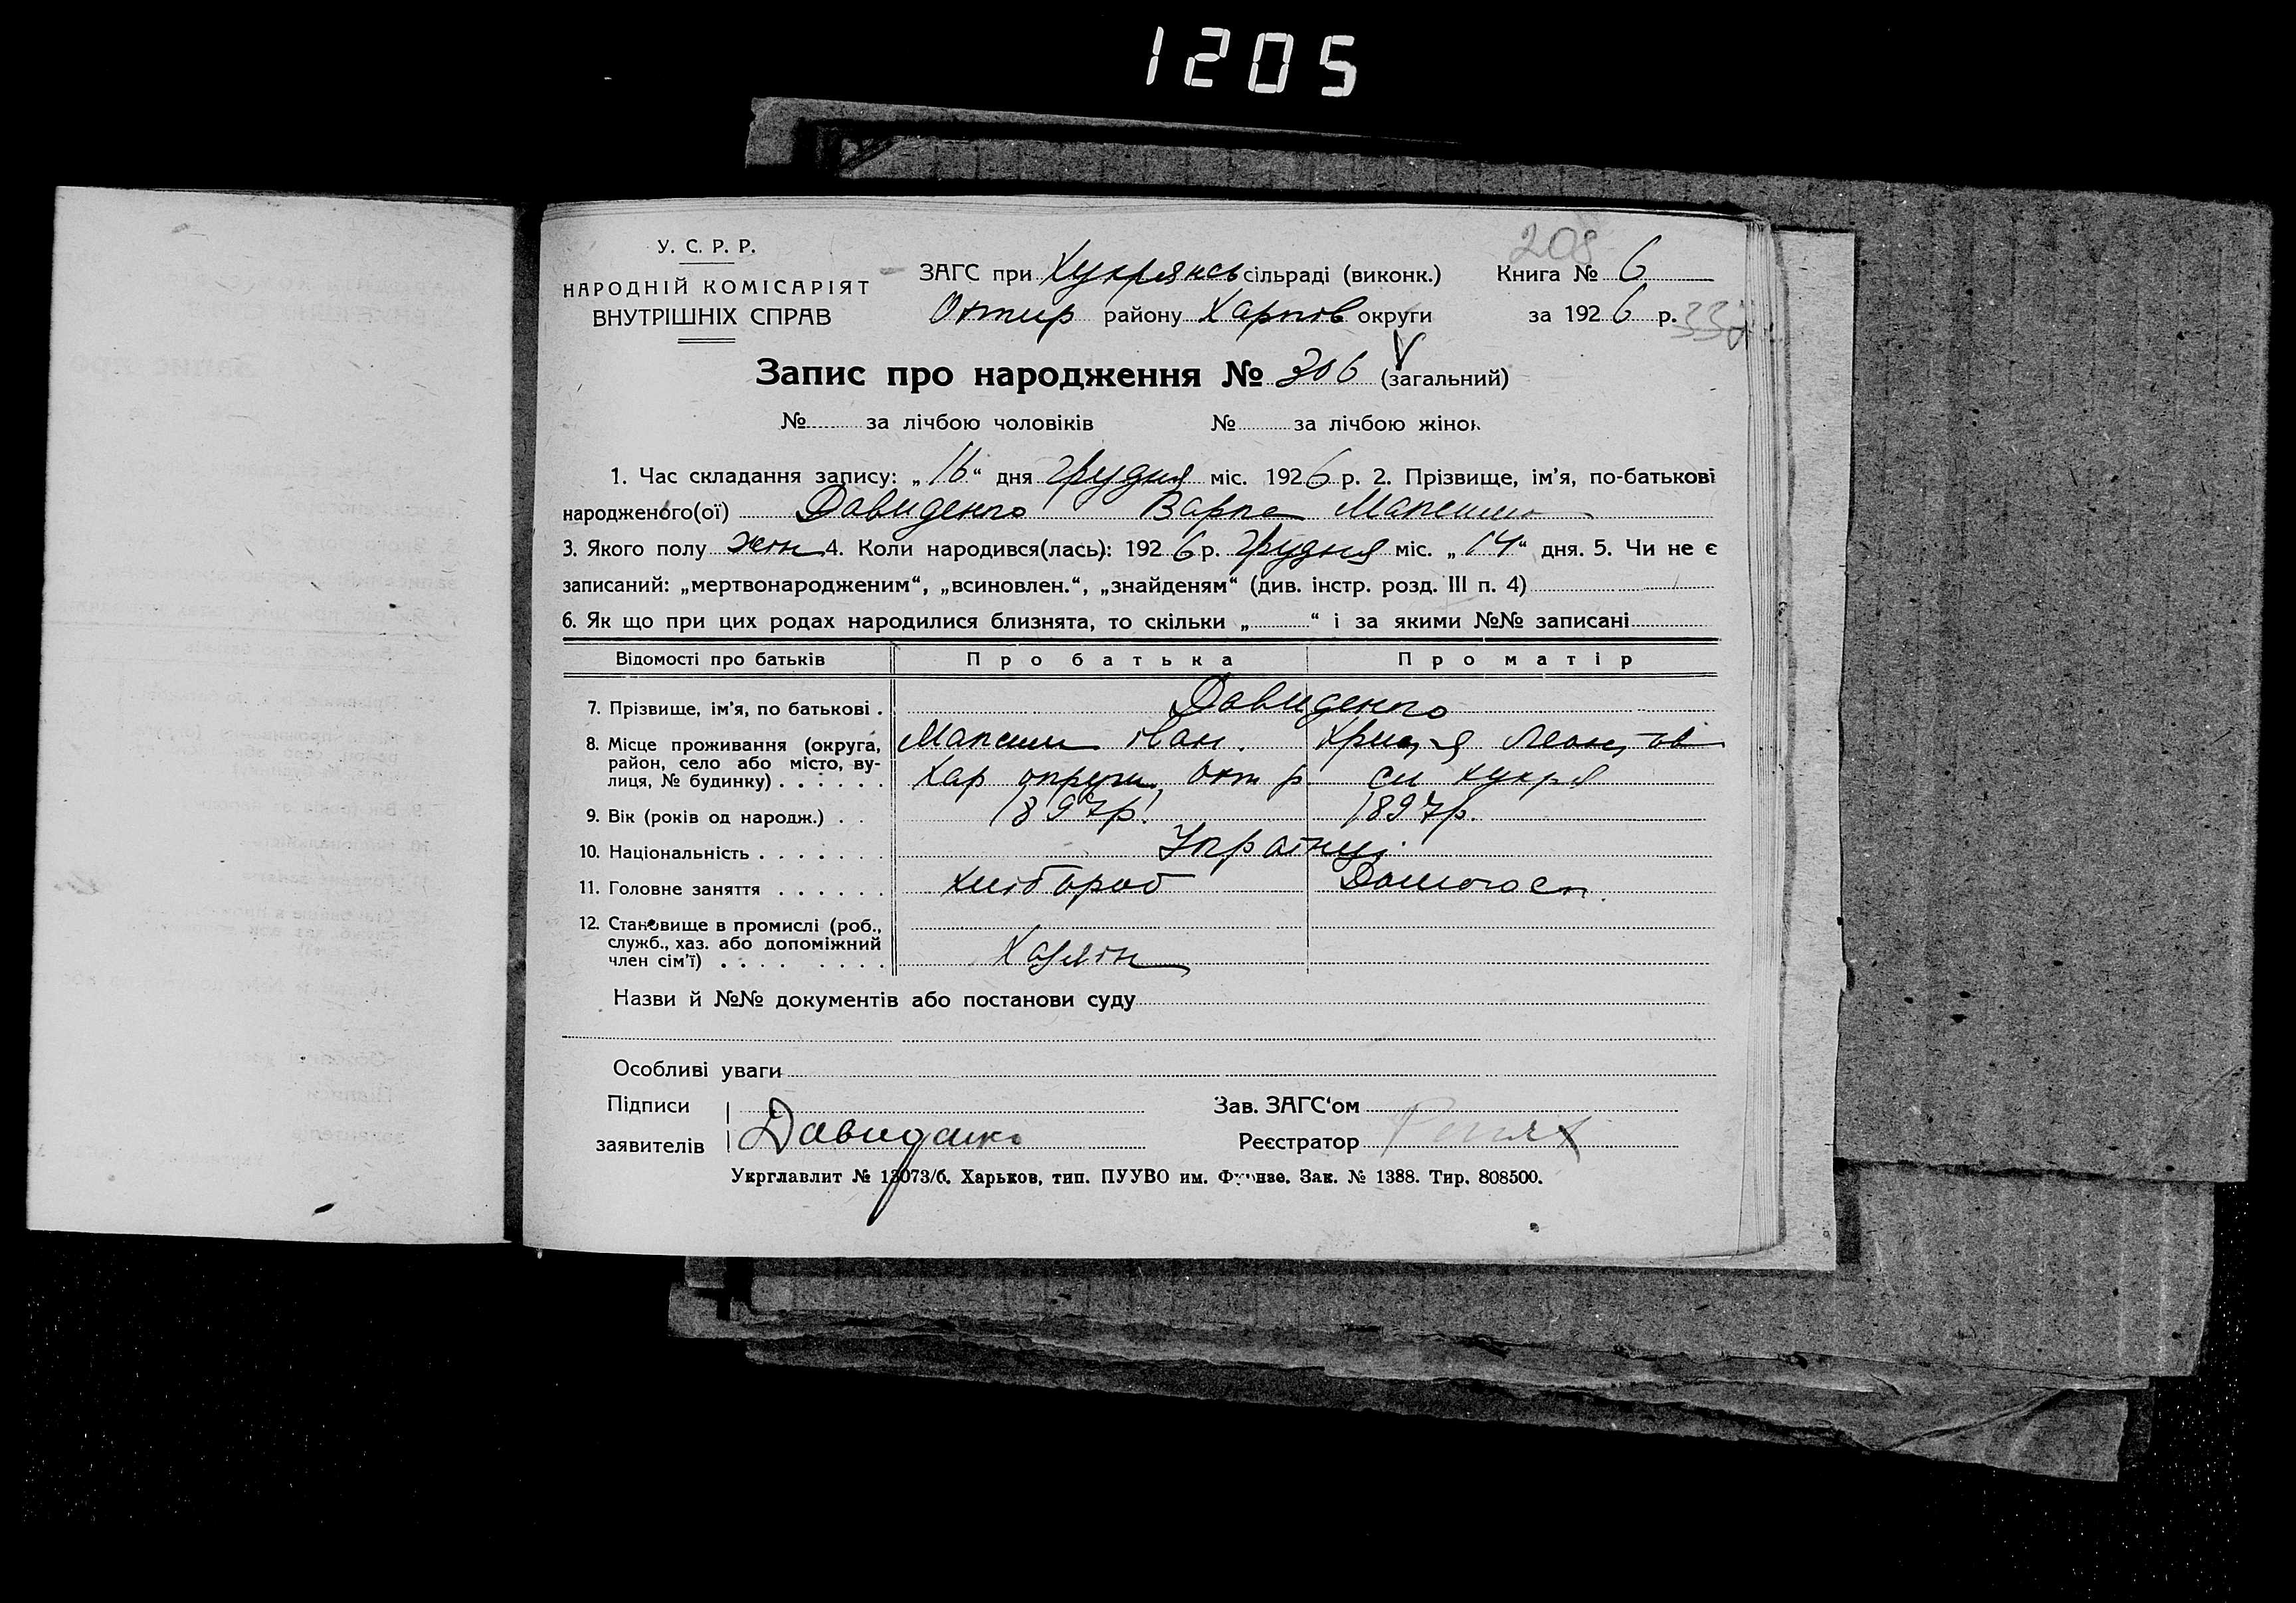 1205
208
У. С. Р. Р.
НАРОДНІЙ КОМІСАРІЯТ
ВНУТРІШНІХ СПРАВ
ЗАГС при Хукрянсь сільраді (виконк.) Книга № 6
Охтир району Харків округи за 1926 р.
Запис про народження № 306 (загальний)
№ за лічбою чоловіків № за лічбою жінок
1. Час складання запису: „16“ дня грудня міс. 1926 р. 2. Прізвище, ім’я, по-батькові
народженого(ої) Давиденко Варка Максим
3. Якого полу жін 4. Коли народився(лась): 1926 р. грудня міс. „14“ дня. 5. Чи не є
записаний: „мертвонародженим“, „всиновлен.“, „знайденям“ (див. інстр. розд. III п. 4)
6. Як що при цих родах народилися близнята, то скільки „ “ і за якими №№ записані
Відомості про батьків Про батька Про матір
7. Прізвище, ім’я, по батькові . Давиденко
Максим Іван. Христя Леонтов
8. Місце проживання (округа,
район, село або місто, ву-
лиця, № будинку) . . . . . . Хар округи, Охт р. см Хукря
9. Вік (років од народж.) . . 1897р. 1897р.
10. Національність . . . . . . . Українці
11. Головне заняття . . . . . . Хлібороб Домогосп.
12. Становище в промислі (роб.,
служб., хаз. або допоміжний
член сім’ї) . . . . . . . . Хазяїн
Назви й №№ документів або постанови суду
Особливі уваги
Підписи Зав. ЗАГС‘ом
заявителів Давиденко Реєстратор
Укрглавлит № 13073/б. Харьков, тип. ПУУВО им. Фрунзе. Зак. № 1388. Тир. 808500.